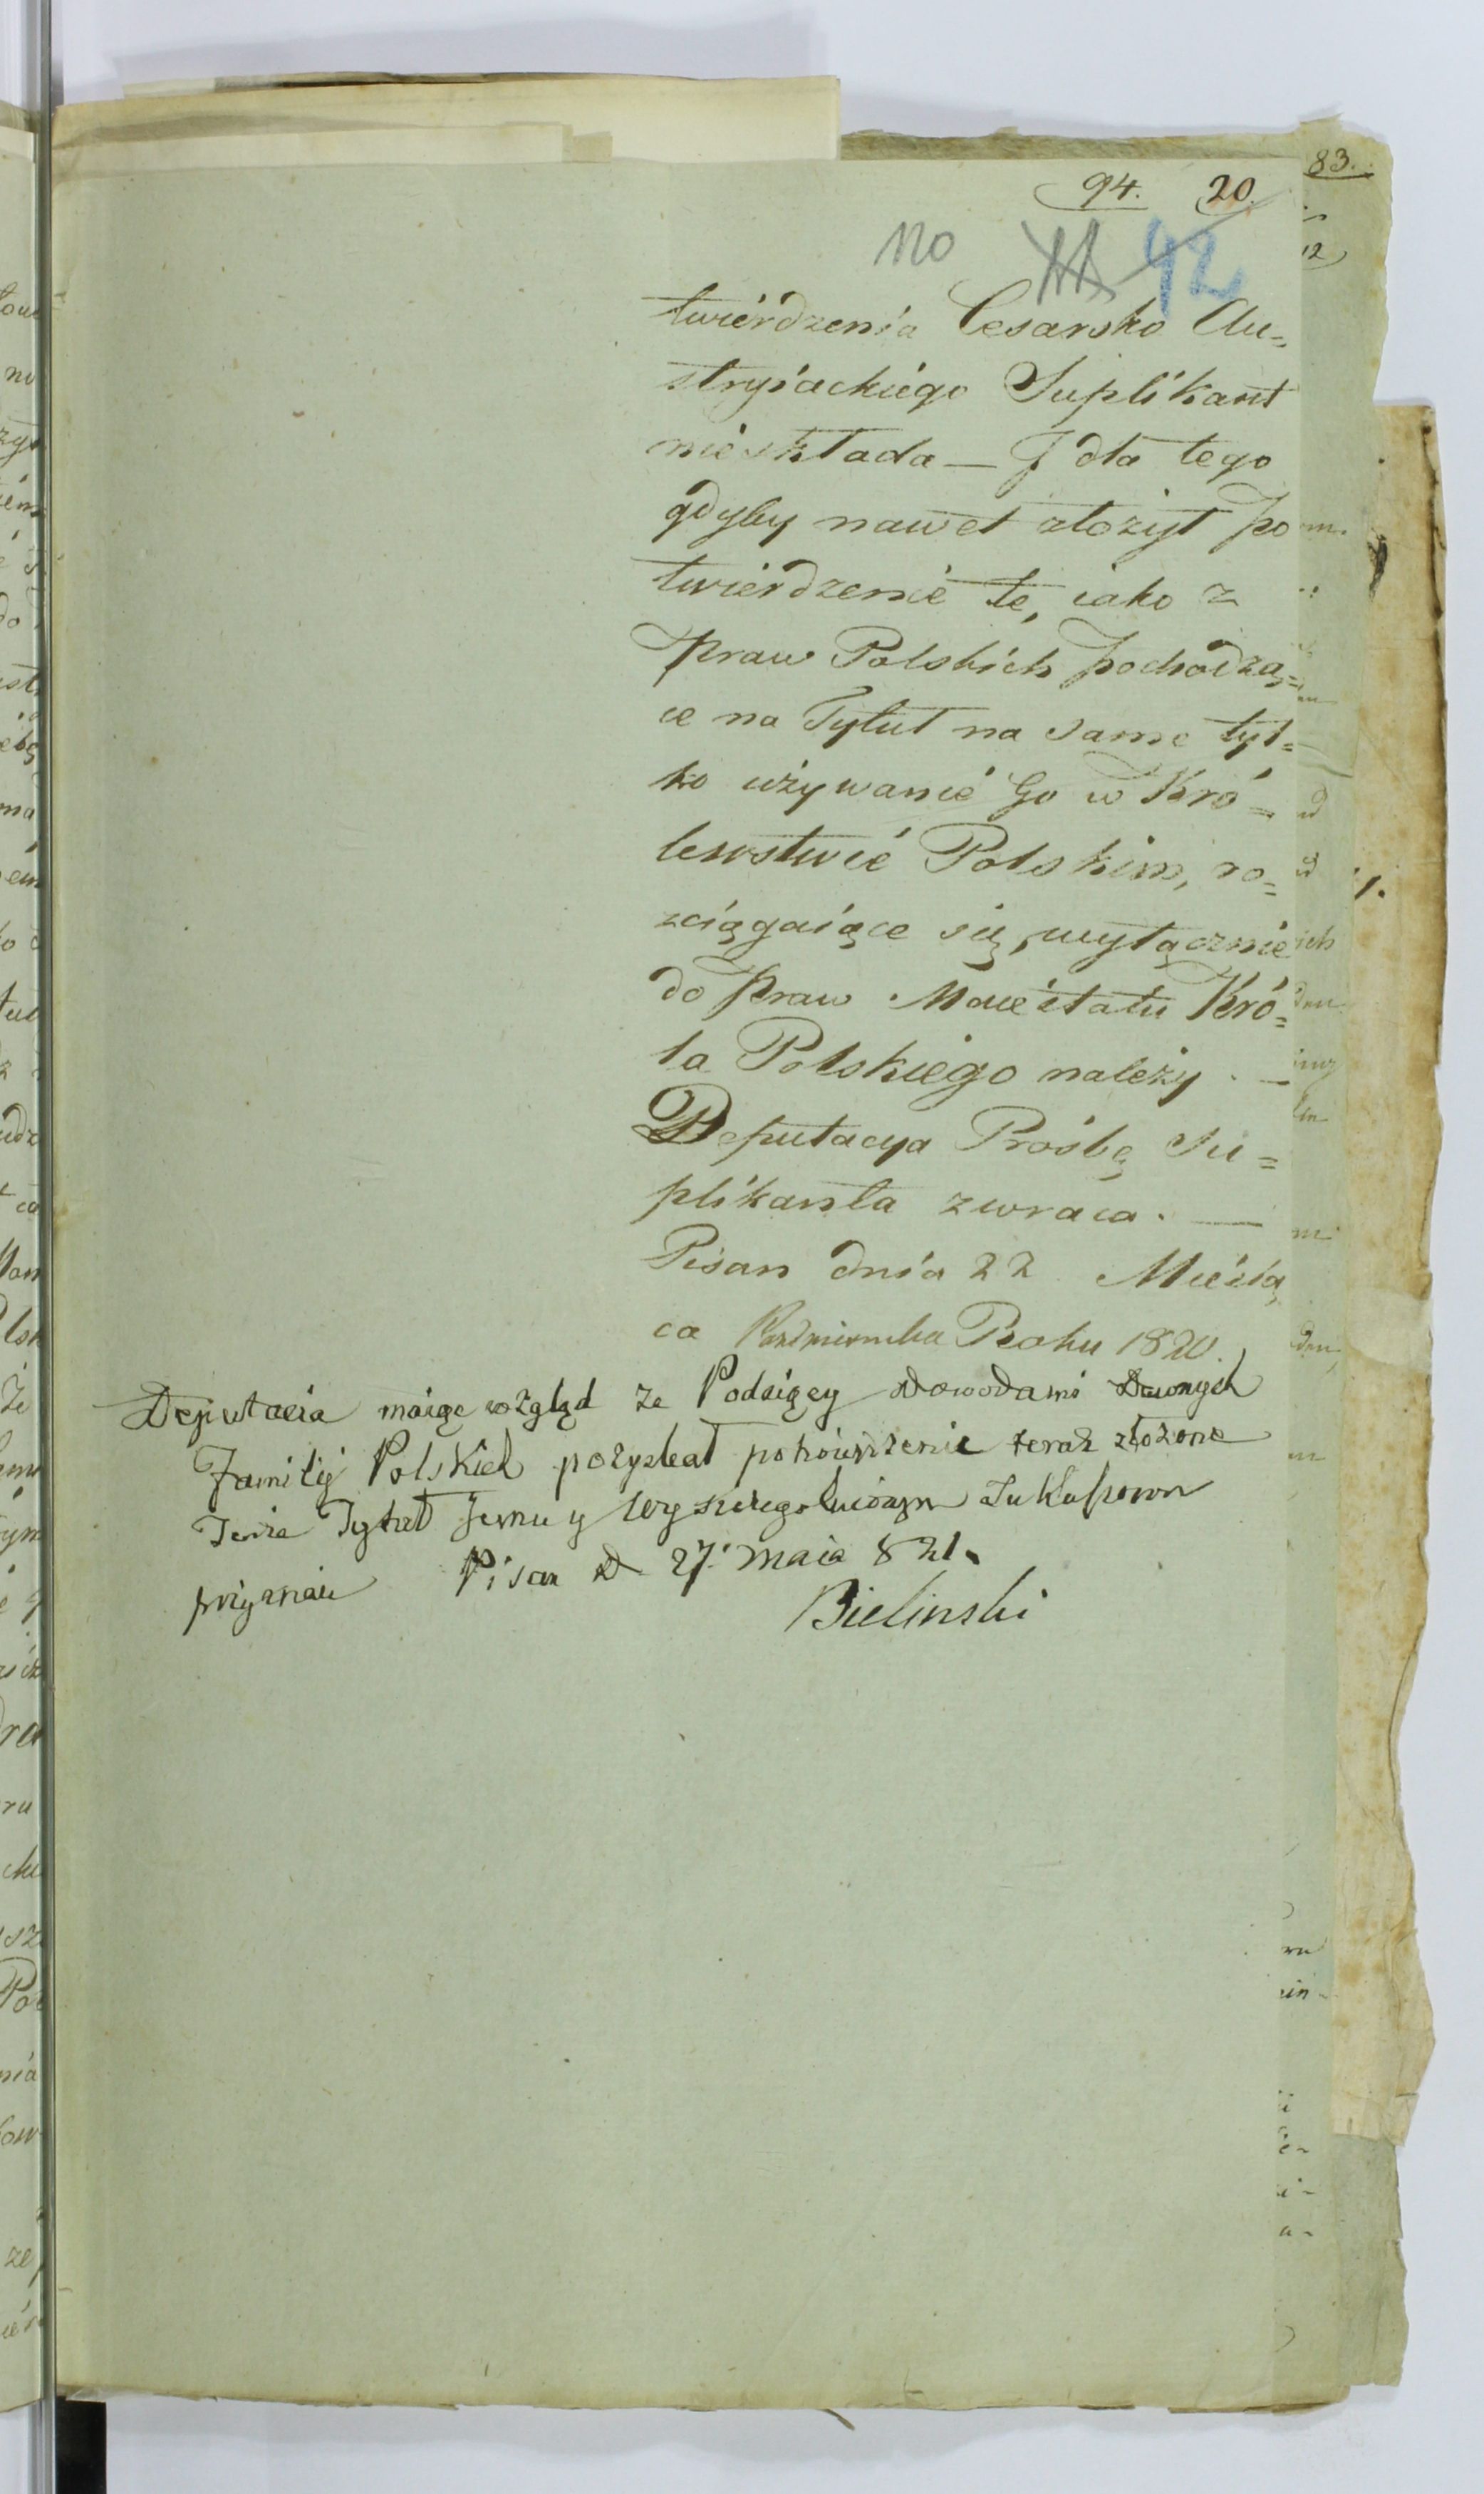 83.
94. 20.
110 92
twierdzenia Cesarsko Au=
stryiackiego Suplikant
nieskłada — J dla tego
gdyby nawet złożył po
twierdzenie te, iako z
praw Polskich pochodzą=
ce na Tytuł na same tyl=
ko używanie Go w Kró=
lewstwie Polskim, ro=
zciągaiące się, wyłącznie
do praw Maiestatu Kró=
la Polskiego należy. —
Deputacya Prośbę Su=
plikanta zwraca. —
Pisan dnia 22 Miesią
ca Października Roku 1820.
Deputacia maiąc wzgląd że Podsięcy dowodami dawnych
Familij Polskich pozyskał potwierdzenie teraz złożone
Tytuł Jemu y
przyznaie Pisan D 27. maia 821.
Bielinski